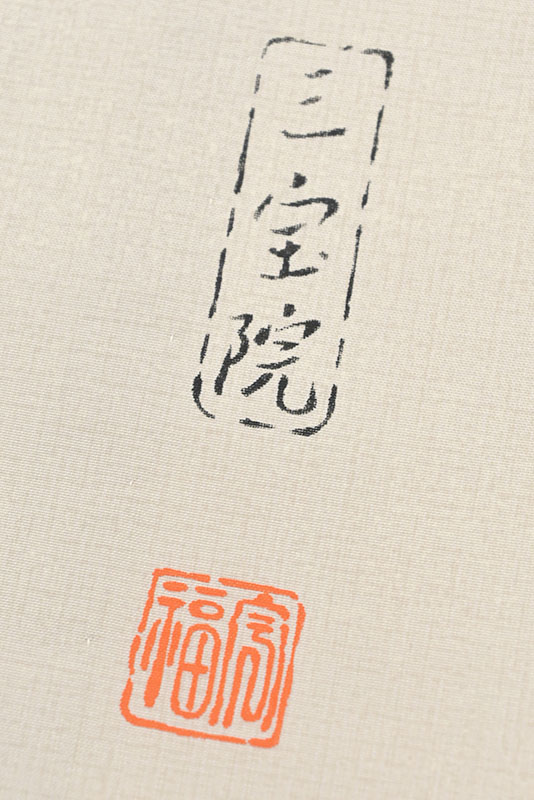 三宝院
福